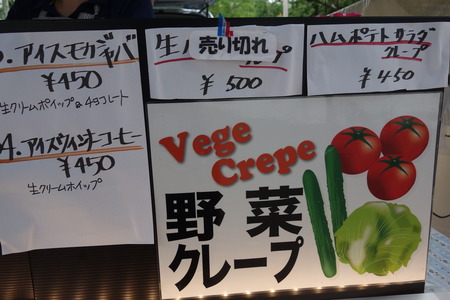 . アイスモカジャバ
¥450
生クリームホイップ&チョコレート
4. アイスウィンナーコーヒー
¥450
生クリームホイップ
生 売り切れ ープ
¥500
ハムポテトサラダ
クレープ
¥450
Vege
Crepe
野菜
クレープ